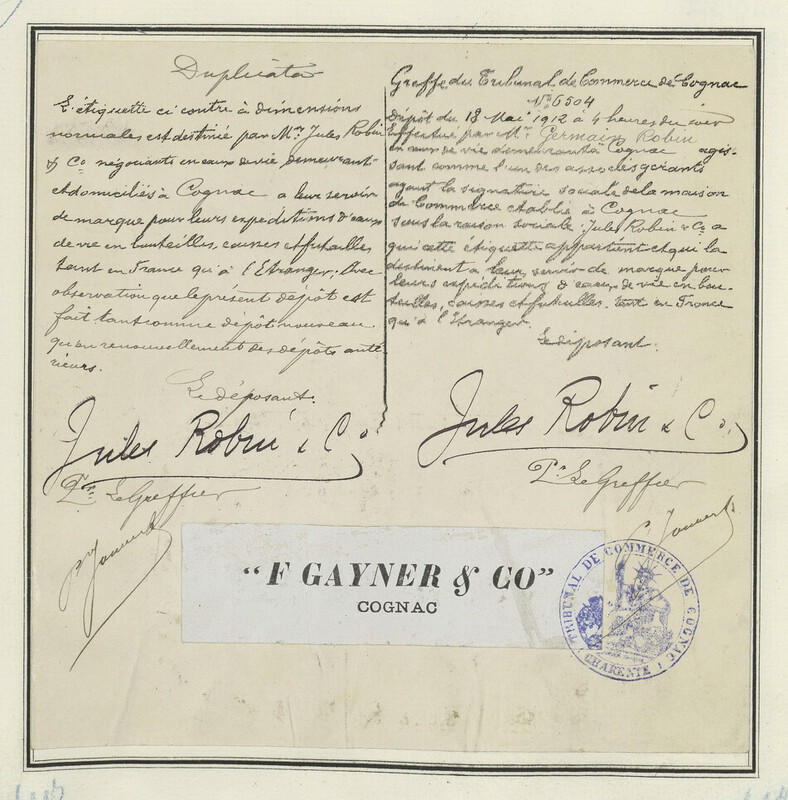 Duplicata
L'étiquette ci contre à dimensions
normales est destinée par Mrs Jules Robin
& Co négociants en eaux de vie, demeurant
et domiciliés à Cognac a leur servir
de marque pour leurs expéditions d'eaux
de vie en bouteilles, caisses et futailles,
tant en France qu'à l'Etranger, Avec
observation que le présent dépôt est
fait tant comme dépôt nouveau
qu'en renouvellement des dépôts anté-
rieurs.
Le déposant.
Jules Robin & Co
Pr. Le Greffier
Greffe du Tribunal de Commerce de Cognac
No 6504
Dépôt du 18 Mai 1912 à 4 heures du soir
Effectué par Mr. Germain Robin
en eaux de vie demeurant à Cognac agis-
sant comme l'un des associés gérants
ayant la signature sociale de la maison
de Commerce établie à Cognac
sous la raison sociale: Jules Robin & Co a
qui cette étiquette appartient et qui la
destinent a leur servir de marque pour
leurs expéditions d'eaux de vie en bou-
teilles, caisses et futailles. tant en France
qu'à l'Etranger.
Le déposant.
Jules Robin & Co,
Pr. Le Greffier
"F GAYNER & CO"
COGNAC
TRIBUNAL DE COMMERCE DE COGNAC
CHARENTE